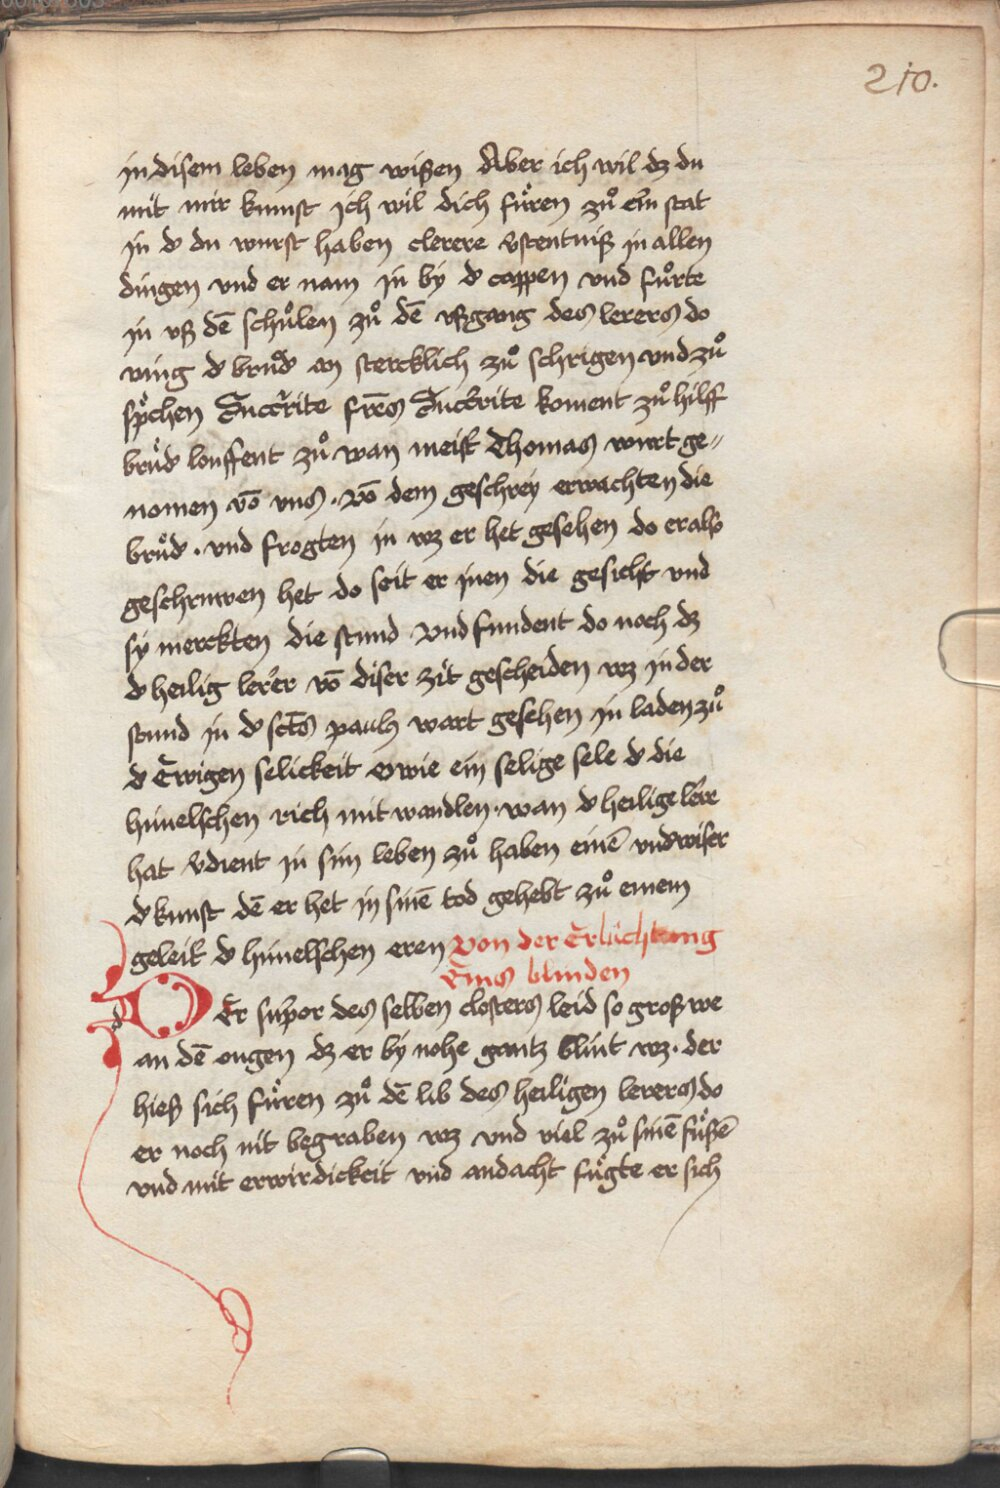 210.
in disem leben mag wißen Aber ich wil dz du
mit mir kumst ich wil dich fuͤren zuͦ ein stat
in d du wurst haben clerere v̉stentniß in allen
dingen vnd er nam in by d cappen vnd fuͦrte
in vß dē schuͦlen zuͦ dē vßgang des lerers do
ving d bruͦd an stercklich zuͦ schrigen vnd zuͦ
sp̈chen Succ̉rite fr̄es Succ̉rite koment zuͦ hilff
bruͤd louffent zuͦ wan meist̉ Thomas wurt ge〃
nomen vō vns · vō dem geschrey erwachten die
bruͤd · vnd frogten in wz er het gesehen do er also
geschruwen het do seit er inen die gesicht vnd
sy merckten die stund vnd fundent do noch dz
d heilig lerer vō diser zit gescheiden wz in der
stund in d sct̄s paulus wart gesehen in laden zuͦ
d Ewigen selickeit O wie ein selige sele d die
himelschen rich mit wandlen · wan d heilige lere
hat v̉dient in sim leben zuͦ haben einē vndwiser
d kunst dē er het in sinē tod gehebt zuͦ einem
geleit d himelschen eren von der Erlüchtung
Eins blinden
DEr sup̉or des selben closters leid so groß we
an dē ougen dz er by nohe gantz blint wz · der
hieß sich fuͤren zuͦ dē lib des heiligen lerers do
er noch nit begraben wz vnd viel zuͦ sinē fuͤßē
vnd mit erwirdickeit vnd andacht fuͤgte er sich